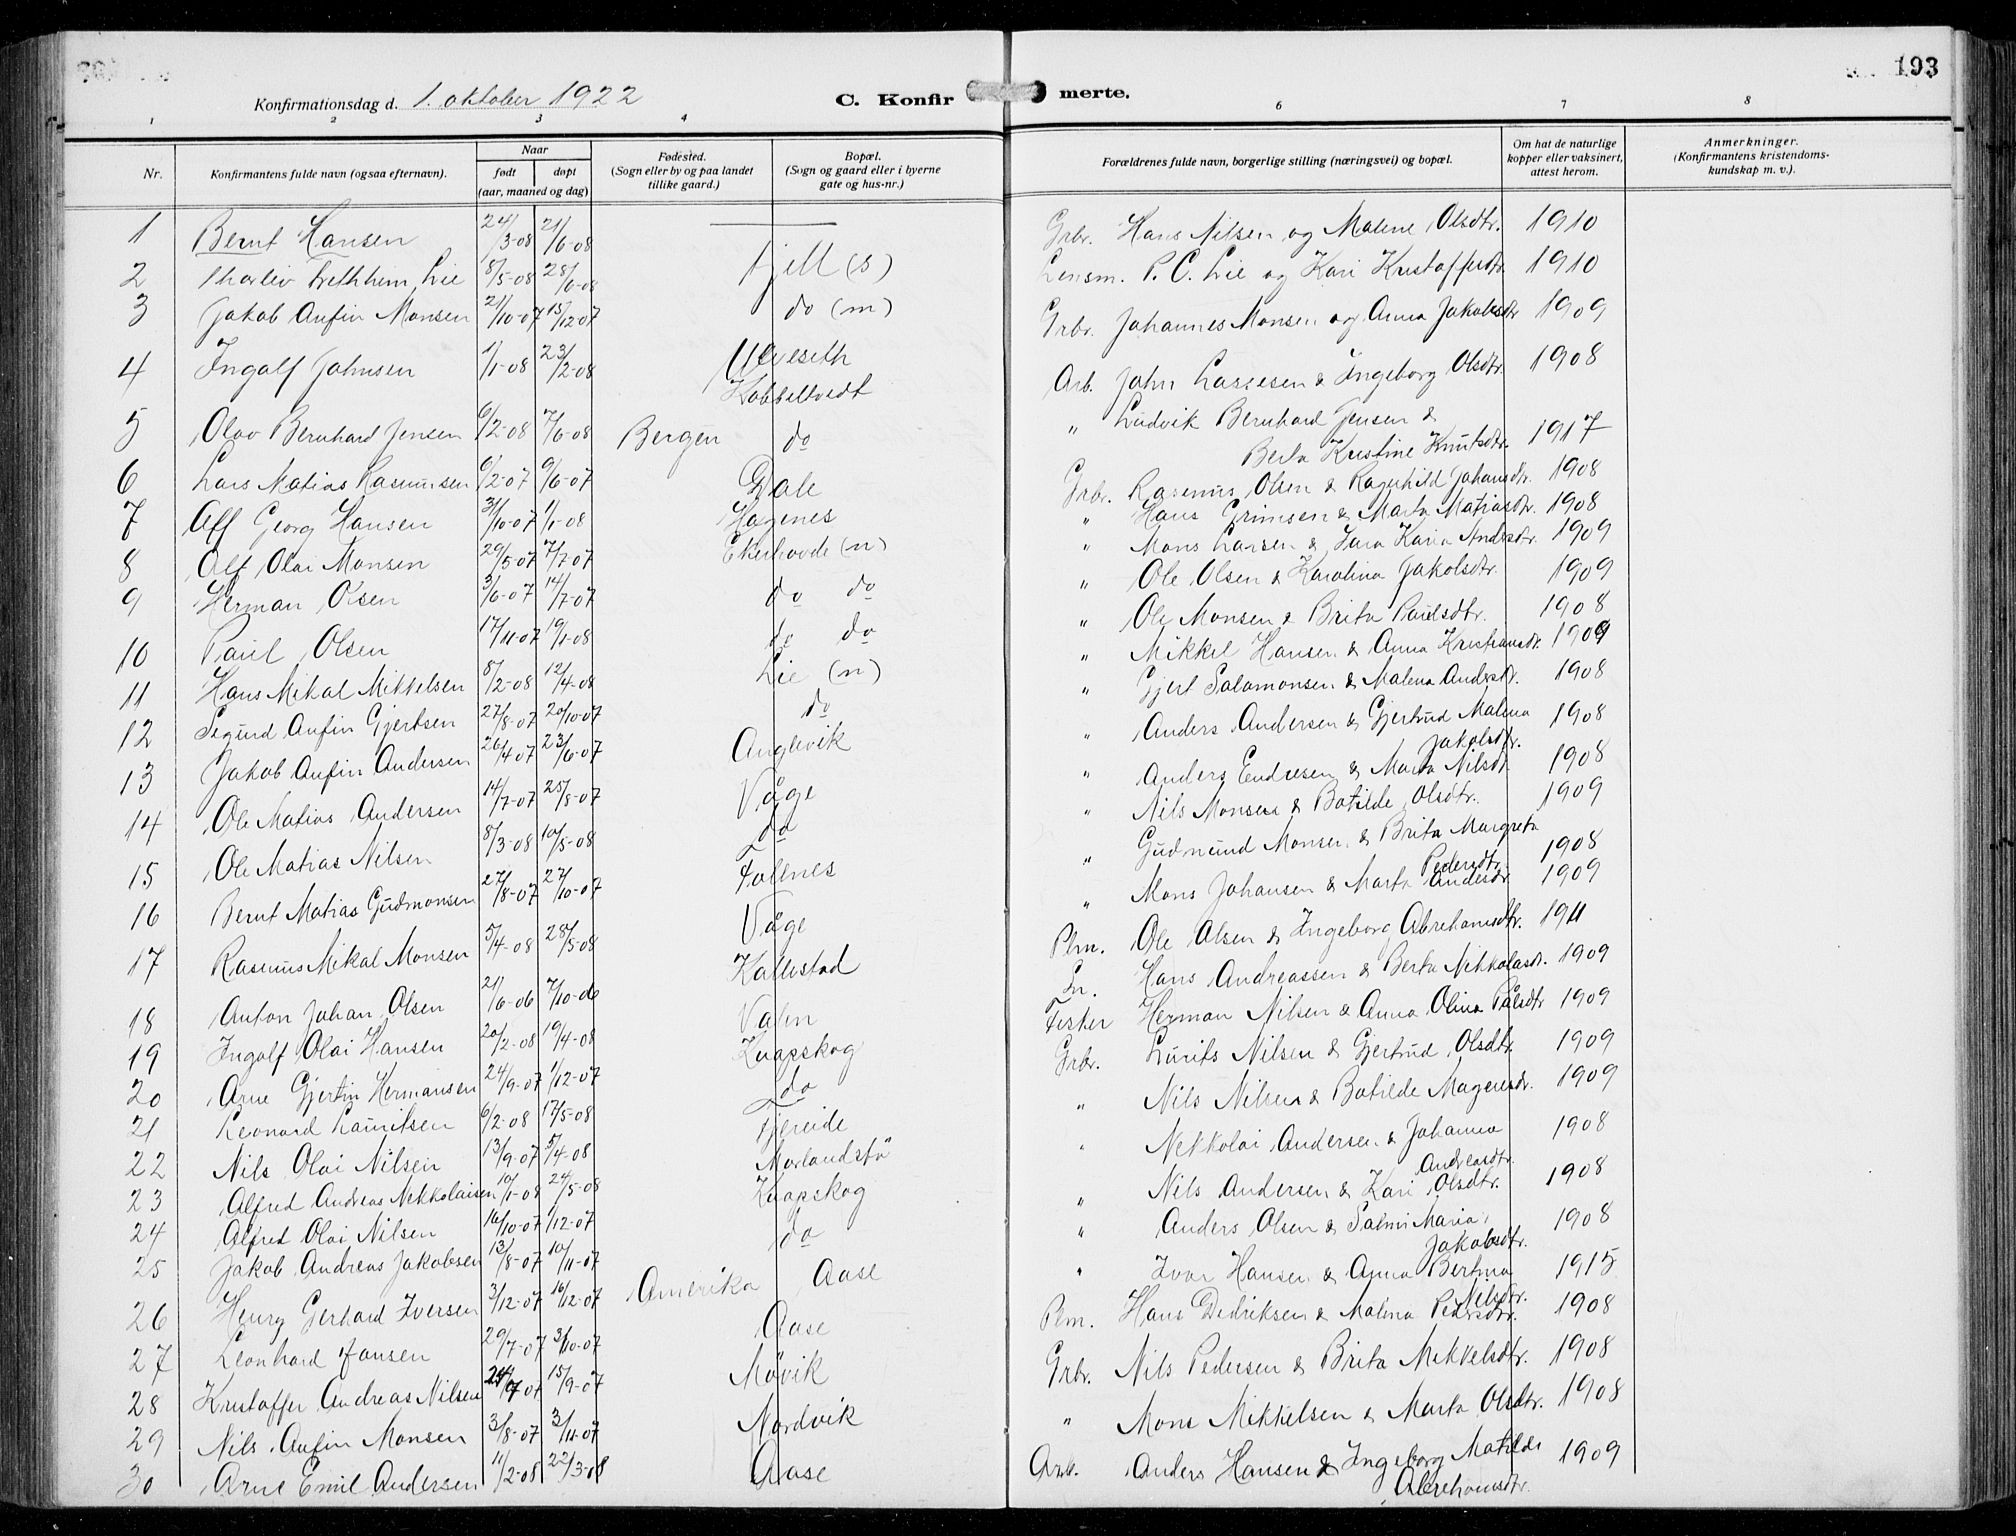 193
Konfirmationsdag d. 1. oktober 1922
C. Konfir merte.
1 2 3 4 6 7 8
Nr. Konfirmantens fulde navn (ogsaa efternavn). Naar født døpt (aar, maaned og dag) Fødested. (Sogn eller by og paa landet tillike gaard.) Bopæl. (Sogn og gaard eller i byerne gate og hus-nr.) Forældrenes fulde navn, borgerlige stilling (næringsvei) og bopæl. Om hat de naturlige kopper eller vaksinert, attest herom. Anmerkninger. (Konfirmantens kristendomskundskap m. v.).
1 Bernt Hansen 24/3-08 21/6-08 Grbr. Hans Nilsen og Malene Olsdtr. 1910
2 Thorleiv Fretthiem Lie 8/5-08 28/6-08 Fjell (s) Lensm. P. C. Lie og Kari Kristoffersdtr. 1910
3 Jakob Anfin Monsen 21/10-07 15/12-07 do (m) Grbr. Johannes Monsen og Anna Jakobsdtr 1909
4 Ingolf Johnsen 1/1-08 23/2-08 Ulveseth Kobbeltvedt Arb. John Lassesen & Ingeborg Olsdtr. 1908
5 Olav Bernhard Jensen 6/2-08 7/6-08 Bergen do " Ludvik Bernhard Jensen & Berta Kristine Knutsdtr. 1917
6 Lars Matias Rasmusen 6/2-07 9/6-07 Dale Grbr. Rasmus Olsen & Ragnhild Johansdtr. 1908
7 Alf Georg Hansen 31/10-07 1/1-08 Hagenes " Hans Grimsen & Marta Matiasdtr. 1908
8 Alf Olai Monsen 29/5-07 7/7-07 Ekerhovde (n) " Mons Larsen & Sara Karia Andersdtr. 1909
9 Herman Olsen 3/6-07 14/7-07 do do " Ole Olsen & Karolina Jakobsdtr. 1909
10 Paul Olsen 17/11-07 19/1-08 do do " Ole Monsen & Brita Paulsdtr. 1908
11 Hans Mikal Mikkelsen 8/2-08 12/4-08 Lie (n) " Mikkel Hansen & Anna Kristiansdtr. 1909
12 Sigurd Anfin Gjertsen 27/8-07 20/10-07 do " Gjert Salamonsen & Malena Andersdtr. 1908
13 Jakob Anfin Andersen 26/4-07 23/6-07 Anglevik " Anders Andersen & Gjertrud Malena Jakobsdtr. 1908
14 Ole Matias Andersen 14/7-07 25/8-07 Våge " Anders Endresen & Marta Nilsdtr 1908
15 Ole Matias Nilsen 8/3-08 10/5-08 do " Nils Monsen & Botilde Olsdtr. 1909
16 Bernt Matias Gudmonsen 27/8-07 27/10-07 Folenes " Gudmund Monsen & Brita Margreta Pedersdtr. 1908
17 Rasmus Mikal Monsen 5/4-08 28/5-08 Våge " Mons Johansen & Marta Andersdtr 1909
18 Anton Johan Olsen 21/6-06 7/10-06 Kallestad Plm. Ole Olsen & Ingeborg Abrehamsdtr. 1911
19 Ingolf Olai Hansen 20/2-08 19/4-08 Valen Hans Andreassen & Berta Nikkolasdtr. 1909
20 Arne Gjertin Hermansen 24/9-07 1/12-07 Knapskog Fisker Herman Nilsen & Anna Olina Pålsdtr 1909
21 Leonard Lauritsen 6/2-08 17/5-08 do Grbr. Lurits Nilsen & Gjertrud Olsdtr. 1909
22 Nils Olai Nilsen 13/9-07 5/4-08 Fjereide " Nils Nilsen & Botilde Magnesdtr. 1909
23 Alfred Andreas Nikkolaisen 10/1-08 24/5-08 Morlandstø " Nikkolai Andersen & Johanna Andreasdtr. 1908
24 Alfred Olai Nilsen 16/10-07 1/12-07 Knapskog " Nils Andersen & Kari Olsdtr. 1908
25 Jakob Andreas Jakobsen 13/8-07 10/11-07 do " Anders Olsen & Salmi Maria Jakobsdtr. 1908
26 Henry Gerhard Iversen 3/12-07 16/12-07 Amerika Aase " Ivar Hansen & Anna Bertina Nilsdtr. 1915
27 Leonhard Hansen 29/7-07 3/10-07 Aase Plm. Hans Dedriksen & Malena Pedersdtr. 1908
28 Kristoffer Andreas Nilsen 15/9-07 Møvik Grbr. Nils Pedersen & Brita Mikkelsdtr. 1908
29 Nils Anfin Monsen 3/8-07 3/11-07 Nordvik " Mons Mikkelsen & Marta Olsdtr. 1908
30 Arne Emil Andersen 11/2-08 22/3-08 Aase Arb. Anders Hansen & Ingeborg Matilde Abrehamsdtr. 1909